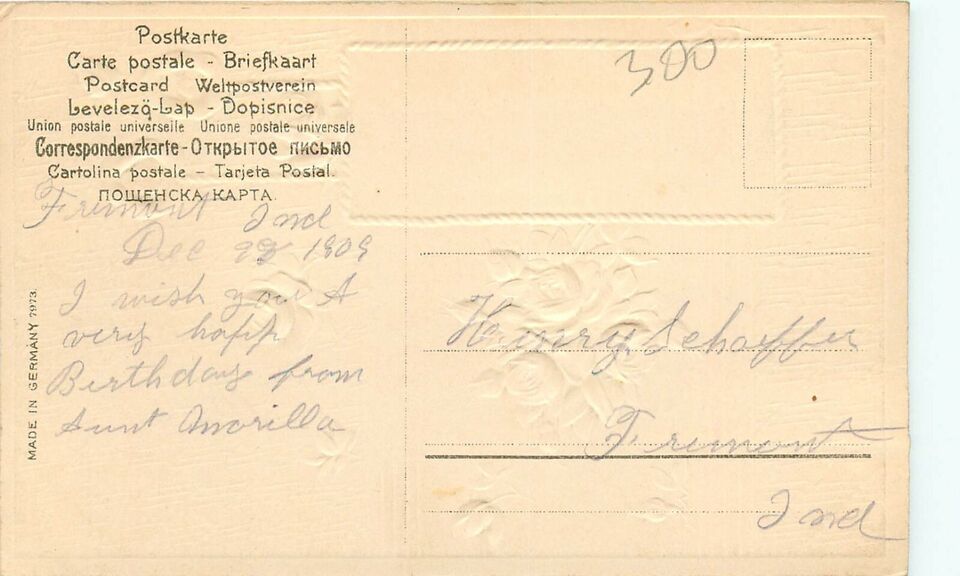 Postkarte
Carte postale - Briefkaart
Postcard Weltpostverein
Levelező-Lap - Dopisnice
Union postale universelle Unione postale universale
Correspondenzkarte - Открытое письмо
Cartolina postale - Tarjeta Postal.
ПОЩЕНСКА КАРТА.
300
Fremont Ind
Dec 1909
I wish you A
very happ
Birthday from
Aunt Morilla
Hainry Schaffer
Fremont
Ind
MADE IN GERMANY 7973.